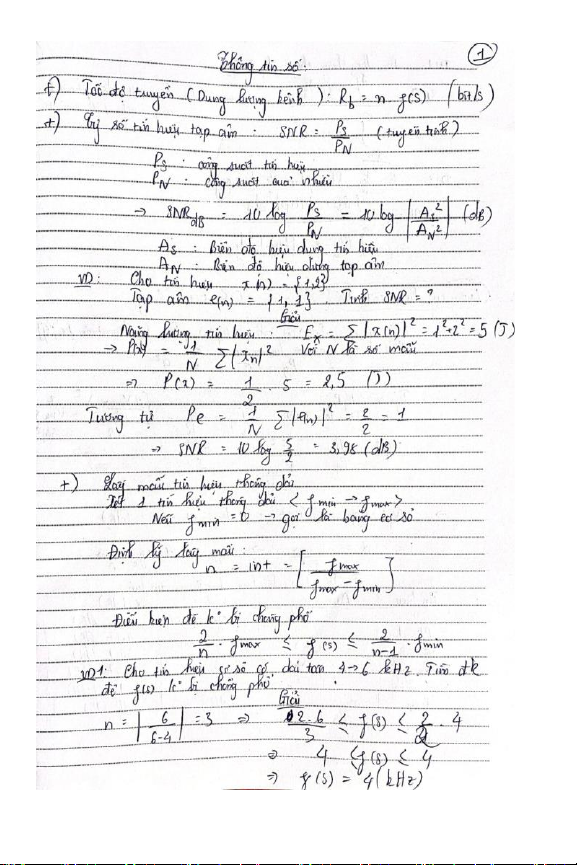 1
Thông tin số.
+) Tốc độ truyền (Dung lượng kênh): R_b = n f(s) (bit/s)
+) Tỷ số tín hiệu tạp âm: SNR = P_S / P_N (tuyến tính)
P_S: công suất tín hiệu
P_N: công suất của nhiễu
→ SNR_dB = 10 log P_S / P_N = 10 log |A_S² / A_N²| (dB)
A_S: Biên độ hiệu dụng tín hiệu
A_N: Biên độ hiệu dụng tạp âm
VD: Cho tín hiệu x(n) = {1,2}
Tạp âm e(n) = {1,1}. Tính SNR = ?
Giải
Năng lượng tín hiệu: E_x = Σ |x(n)|² = 1²+2² = 5 (J)
→ P(x) = 1/N Σ |x_n|² Với N là số mẫu
⇒ P(x) = 1/2 . 5 = 2,5 (J)
Tương tự P_e = 1/N Σ |e(n)|² = 2/2 = 1
⇒ SNR = 10 log 5/2 = 3,98 (dB)
+) Lấy mẫu tín hiệu thông dải
Xét 1 tín hiệu thông dải < f_min → f_max >
Nếu f_min = 0 → gọi là băng cơ sở
Định lý lấy mẫu:
n = int = [f_max / f_max - f_min]
Điều kiện để k° bị chồng phổ
2/n . f_max ≤ f(s) ≤ 2/n-1 . f_min
VD1: Cho tín hiệu có dải tần 4→6 kHz. Tìm đk
để f(s) k° bị chồng phổ
Giải
n = |6 / 6-4| = 3 ⇒ 2.6/3 ≤ f(s) ≤ 2/2 . 4
⇒ 4 ≤ f(s) ≤ 4
⇒ f(s) = 4 (kHz)